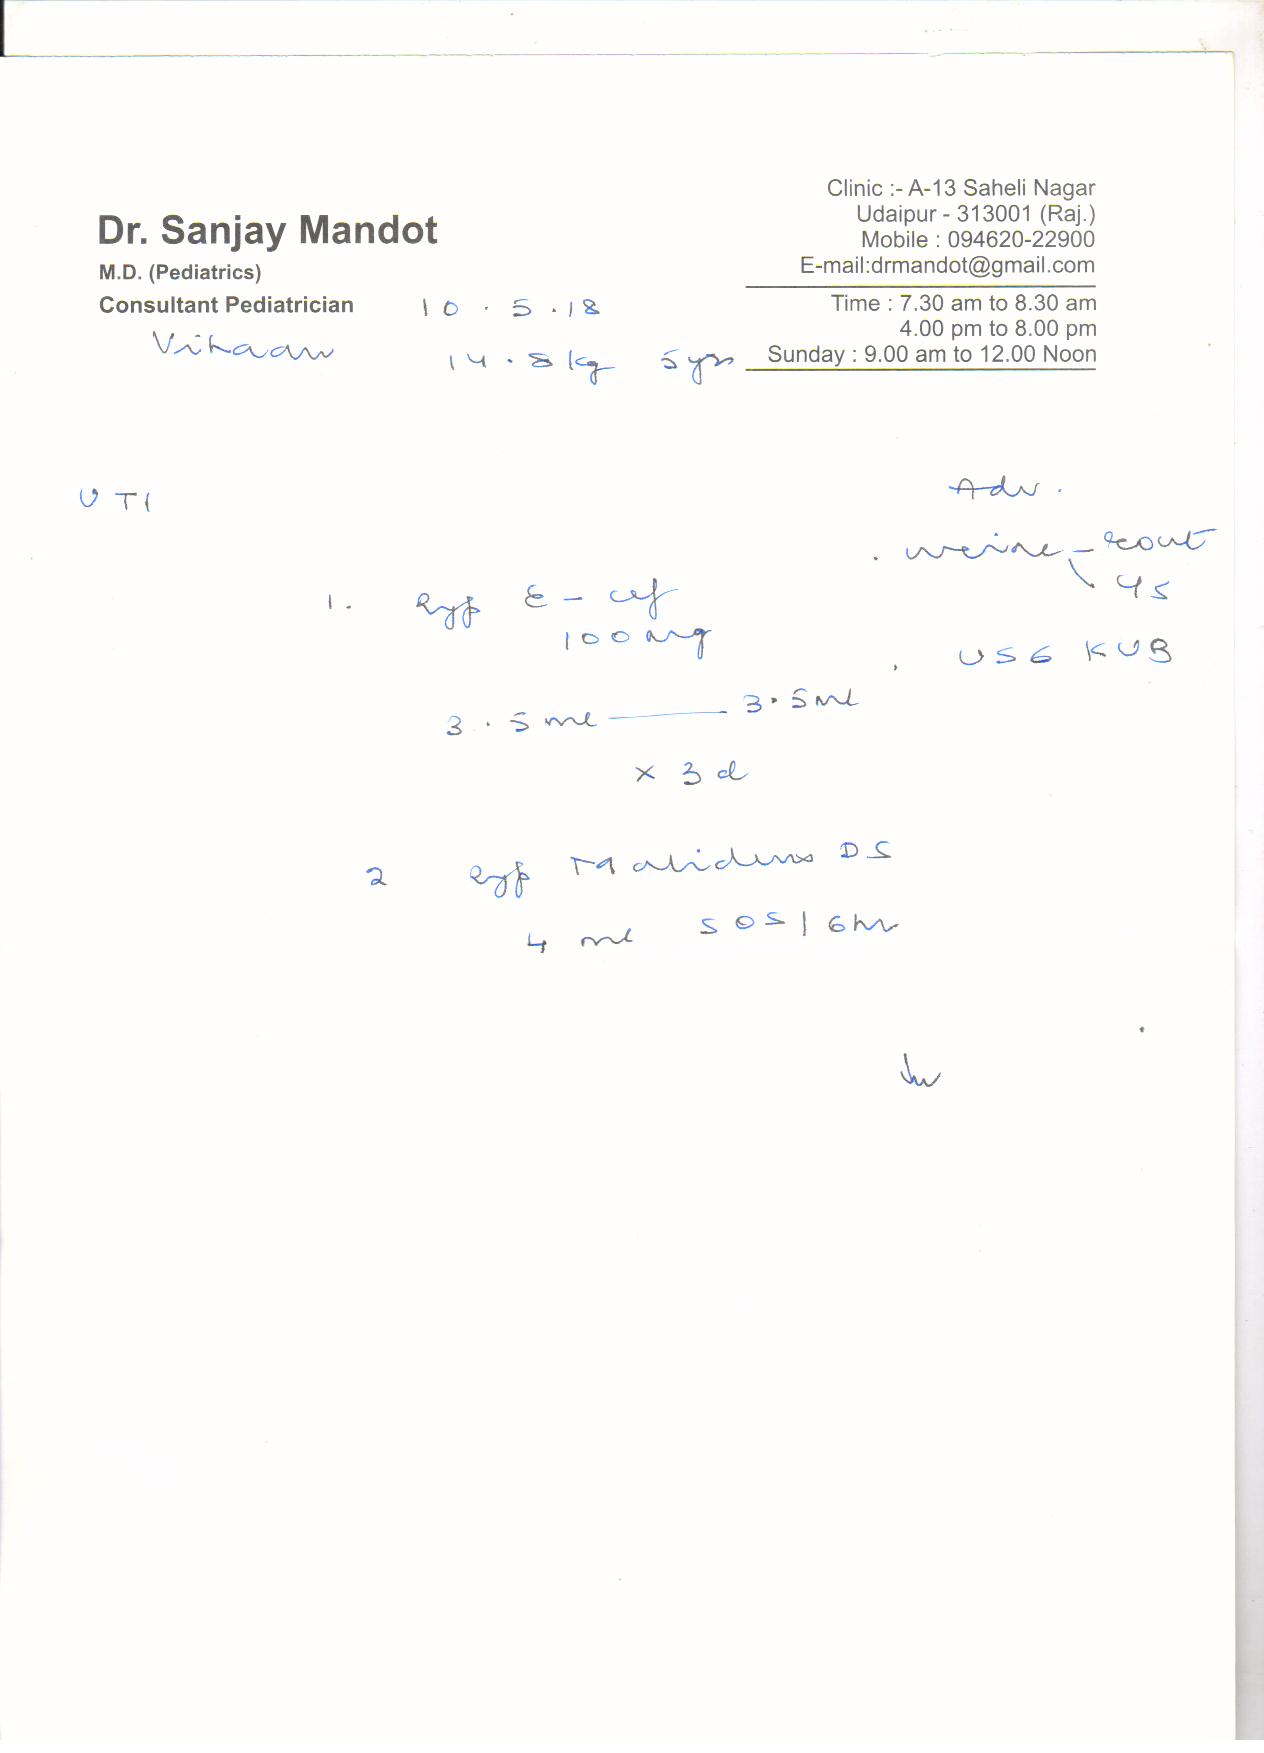 Dr. Sanjay Mandot
M.D. (Pediatrics)
Consultant Pediatrician
Clinic :- A-13 Saheli Nagar
Udaipur - 313001 (Raj.)
Mobile : 094620-22900
E-mail:drmandot@gmail.com
Time : 7.30 am to 8.30 am
4.00 pm to 8.00 pm
Sunday : 9.00 am to 12.00 Noon
10.5.18
Vihaan
14.8 kg 5yr
UTI
Adv.
. urine - rout
c/s
. USG KUB
1. Syp E-cef
100 mg
3.5 ml — 3.5 ml
x 3 d
2 Syp DS
4 ml SOS/6hr